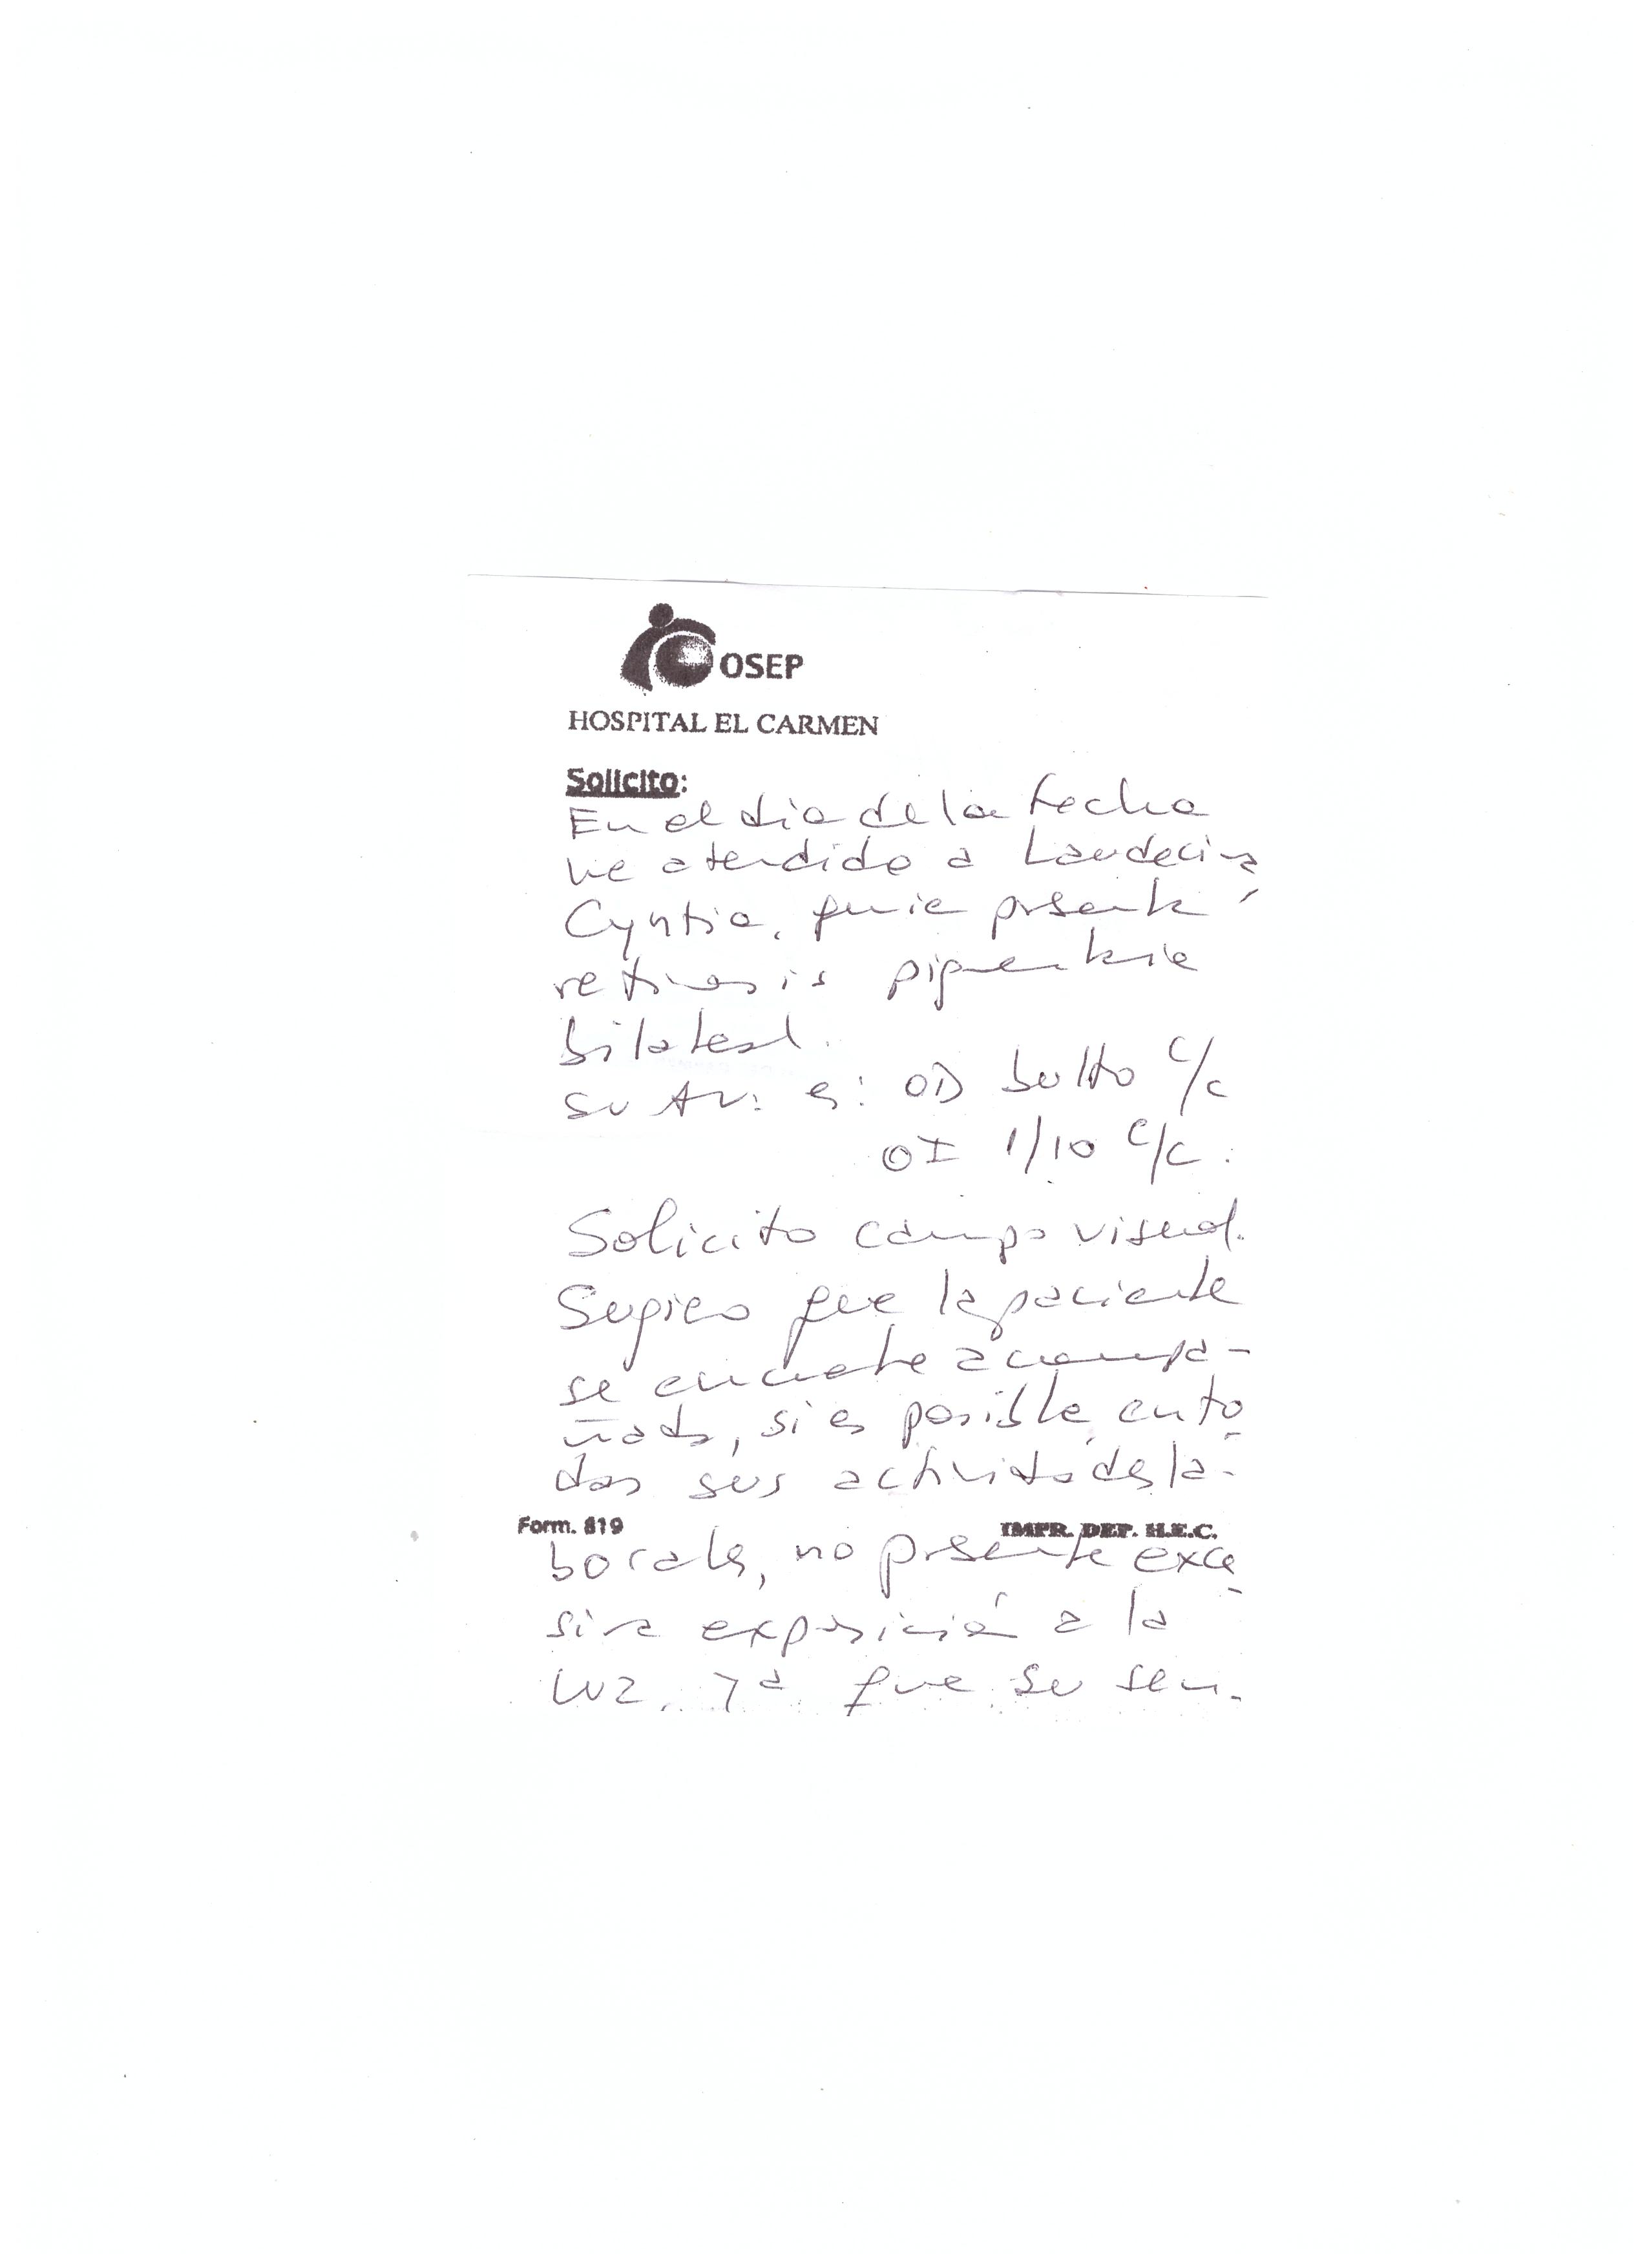 OSEP
HOSPITAL EL CARMEN
Solicito:
En el dia de la fecha
he atendido a Laudecina
Cyntia, quie presenta
retinosis pigmentaria
bilateral.
su AV: es: OD bulto c/c
OI 1/10 c/c.
Solicito campo visual.
Sugiero que la paciente
se encuentre acompa-
ñada, si es posible, en to-
das sus actividades la-
Form. 819 IMPR. DEP. H.E.C.
borales, no presente exce-
siva exposición a la
luz, ya que su sen-